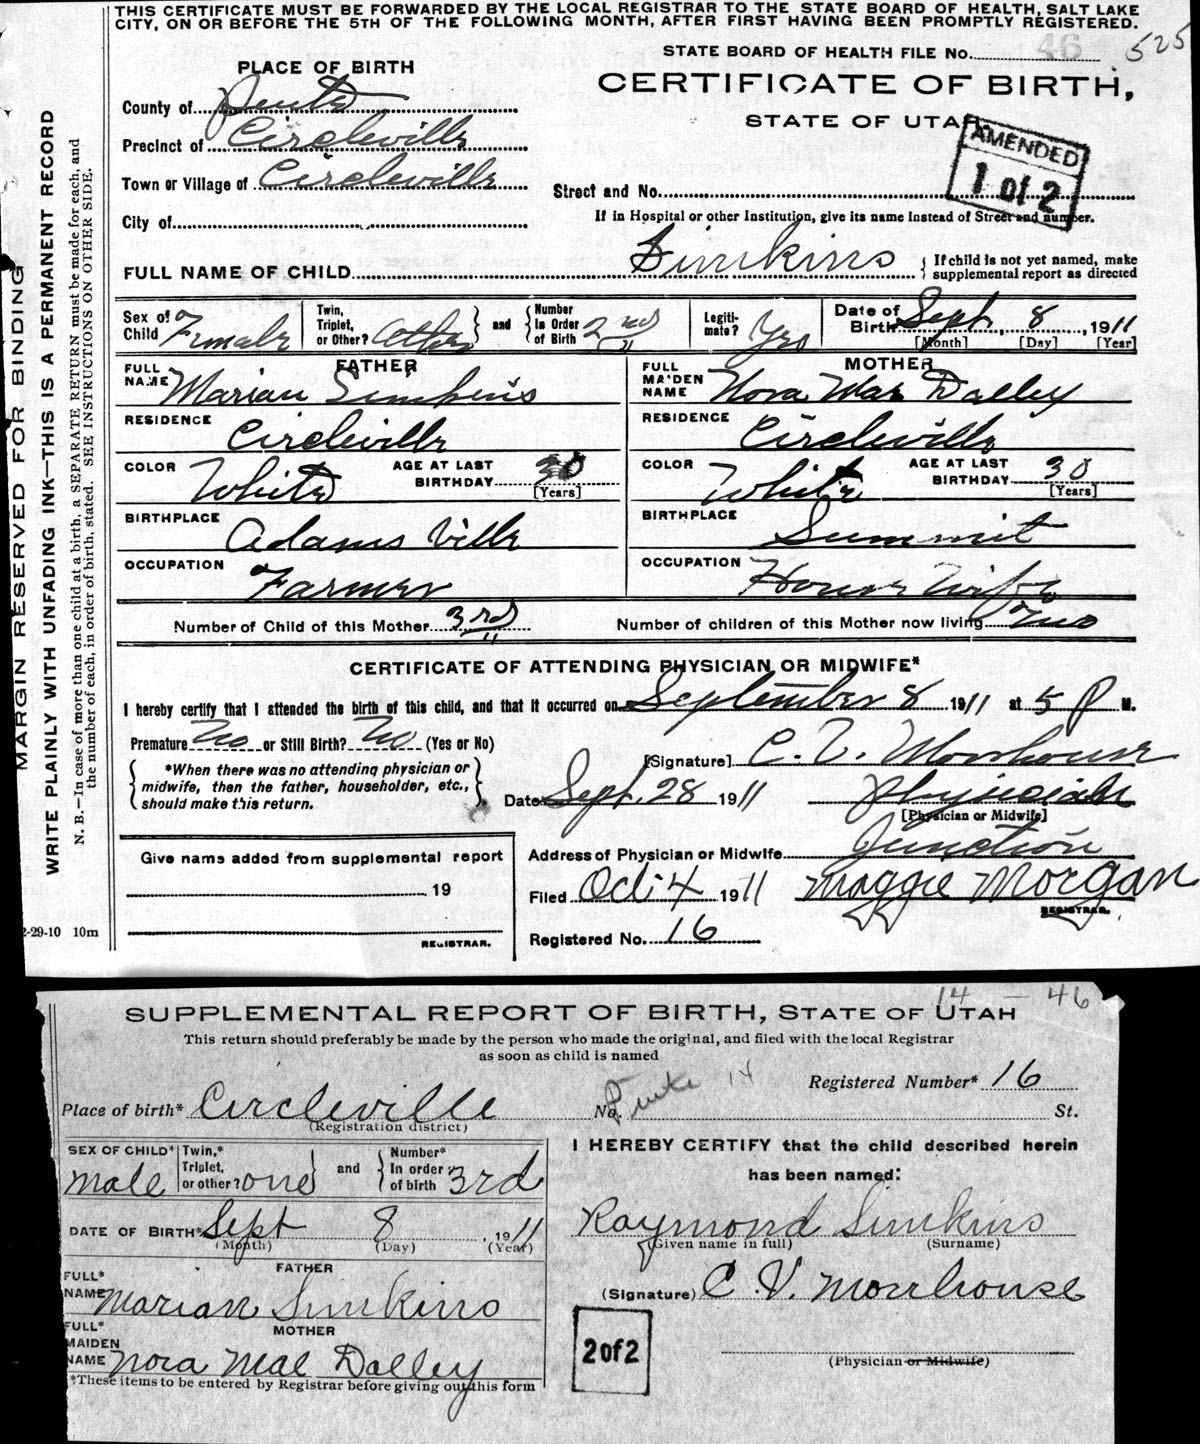 THIS CERTIFICATE MUST BE FORWARDED BY THE LOCAL REGISTRAR TO THE STATE BOARD OF HEALTH, SALT LAKE
CITY, ON OR BEFORE THE 5TH OF THE FOLLOWING MONTH, AFTER FIRST HAVING BEEN PROMPTLY REGISTERED.
STATE BOARD OF HEALTH FILE No. 46 525
PLACE OF BIRTH
CERTIFICATE OF BIRTH,
STATE OF UTAH.
AMENDED
1 of 2
County of Piute
Precinct of Circleville
Town or Village of Circleville
Street and No.
City of
If in Hospital or other Institution, give its name instead of Street and number.
FULL NAME OF CHILD Simkins
{ If child is not yet named, make
supplemental report as directed
Sex of Child Female
Twin, Triplet, or Other? Other } and { Number In Order of Birth 2nd
Legiti-mate? Yes
Date of Birth Sept, 8, 1911
[Month] [Day] [Year]
FATHER
FULL NAME Marian Simkins
RESIDENCE Circleville
COLOR White
AGE AT LAST BIRTHDAY 30
[Years]
BIRTHPLACE Adams Ville
OCCUPATION Farmer
MOTHER
FULL MAIDEN NAME Nora Mae Dalley
RESIDENCE Circleville
COLOR White
AGE AT LAST BIRTHDAY 30
[Years]
BIRTHPLACE Summit
OCCUPATION House Wife
Number of Child of this Mother 3rd
Number of children of this Mother now living Two
CERTIFICATE OF ATTENDING PHYSICIAN OR MIDWIFE*
I hereby certify that I attended the birth of this child, and that it occurred on September 8 1911 at 5 P M.
Premature No or Still Birth? No (Yes or No)
{ *When there was no attending physician or
midwife, then the father, householder, etc.,
should make this return. }
[Signature] C. V. Morrhouse
Date Sept. 28 1911 Physician
[Physician or Midwife]
Address of Physician or Midwife Junction
Filed Oct 4 1911 Maggie Morgan
REGISTRAR.
Registered No. 16
Give name added from supplemental report
19
REGISTRAR.
2-29-10 10m
MARGIN RESERVED FOR BINDING
WRITE PLAINLY WITH UNFADING INK—THIS IS A PERMANENT RECORD
N. B.—In case of more than one child at a birth, a SEPARATE RETURN must be made for each, and
the number of each, in order of birth, stated. SEE INSTRUCTIONS ON OTHER SIDE.
14 – 46
SUPPLEMENTAL REPORT OF BIRTH, STATE OF UTAH
This return should preferably be made by the person who made the original, and filed with the local Registrar
as soon as child is named
Registered Number* 16
Place of birth* Circleville No. Piute 14 St.
(Registration district)
SEX OF CHILD* Male
Twin,* Triplet, or other? one } and { Number* In order of birth 3rd
DATE OF BIRTH* Sept 8, 1911
(Month) (Day) (Year)
FATHER
FULL* NAME Marian Simkins
MOTHER
FULL* MAIDEN NAME Nora Mae Dalley
*These items to be entered by Registrar before giving out this form
I HEREBY CERTIFY that the child described herein
has been named:
Raymond Simkins
(Given name in full) (Surname)
(Signature) C. V. Morrhouse
2 of 2
(Physician or Midwife)